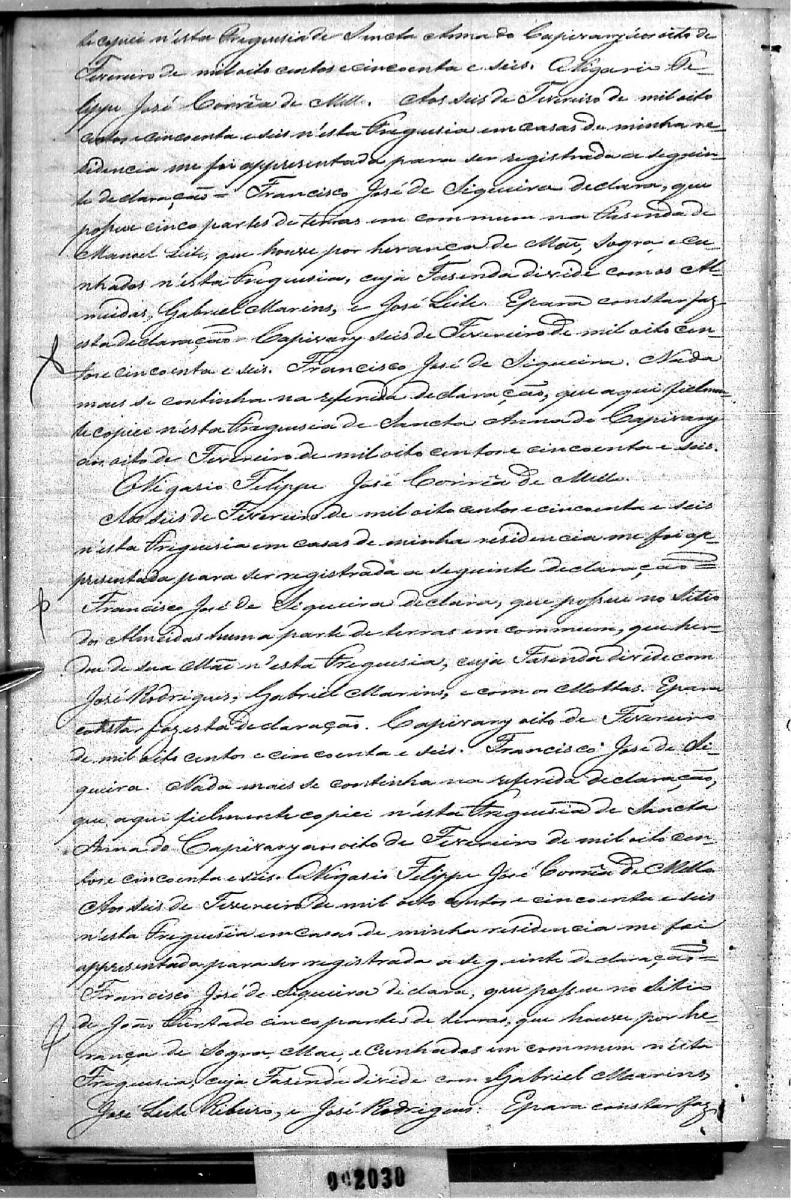 te copiei n'esta Freguesia de Sancta Anna do Capivary aos oito de
Fevereiro de mil oito centos e cincoenta e seis. O Vigario Fe-
lippe José Corrêa de Mello. Aos seis de Fevereiro de mil oito
centos e cincoenta e seis n'esta Freguesia em casas de minha re-
sidencia me foi appresentada para ser registrada a seguin-
te declaração = Francisco José de Siqueira declara, que
possue cinco partes de terras em commum na Fasenda de
Manoel Leite, que houve por herança de Mãe, Sogra, e cu-
nhados n'esta Freguesia, cuja Fasenda divide com os Al-
meidas, Gabriel Marins, e José Leite. E para constar faz
esta declaração. Capivary seis de Fevereiro de mil oito cen-
tos e cincoenta e seis. Francisco José de Siqueira. Nada
mais se continha na referida declaração, que aqui fielmen-
te copiei n'esta Freguesia de Sancta Anna do Capivary
aos oito de Fevereiro de mil oito centos e cincoenta e seis.
O Vigario Felippe José Corrêa de Mello.
Aos seis de Fevereiro de mil oito centos e cincoenta e seis
n'esta Freguesia em casas de minha residencia me foi ap-
presentada para ser registrada a seguinte declaração =
Francisco José de Siqueira declara, que possue no Sitio
dos Almeidas huma parte de terras em commum, que her-
dou de sua Mãe n'esta Freguesia, cuja Fasenda divide com
José Rodrigues, Gabriel Marins, e com os Mottas. E para
constar faz esta declaração. Capivary oito de Fevereiro
de mil oito centos e cincoenta e seis. Francisco José de Si-
queira. Nada mais se continha na referida declaração,
que aqui fielmente copiei n'esta Freguesia de Sancta
Anna do Capivary aos oito de Fevereiro de mil oito cen-
tos e cincoenta e seis. O Vigario Felippe José Corrêa de Mello
Aos seis de Fevereiro de mil oito centos e cincoenta e seis
n'esta Freguesia em casas de minha residencia me foi
appresentada para ser registrada a seguinte declaração =
Francisco José de Siqueira declara, que possue no Sitio
de João Furtado cinco partes de terras, que houve por he-
rança de Sogra, Mãe, e Cunhados em commum n'esta
Freguesia, cuja Fasenda divide com Gabriel Marins,
José Leite Ribeiro, e José Rodrigues. E para constar faz
002030